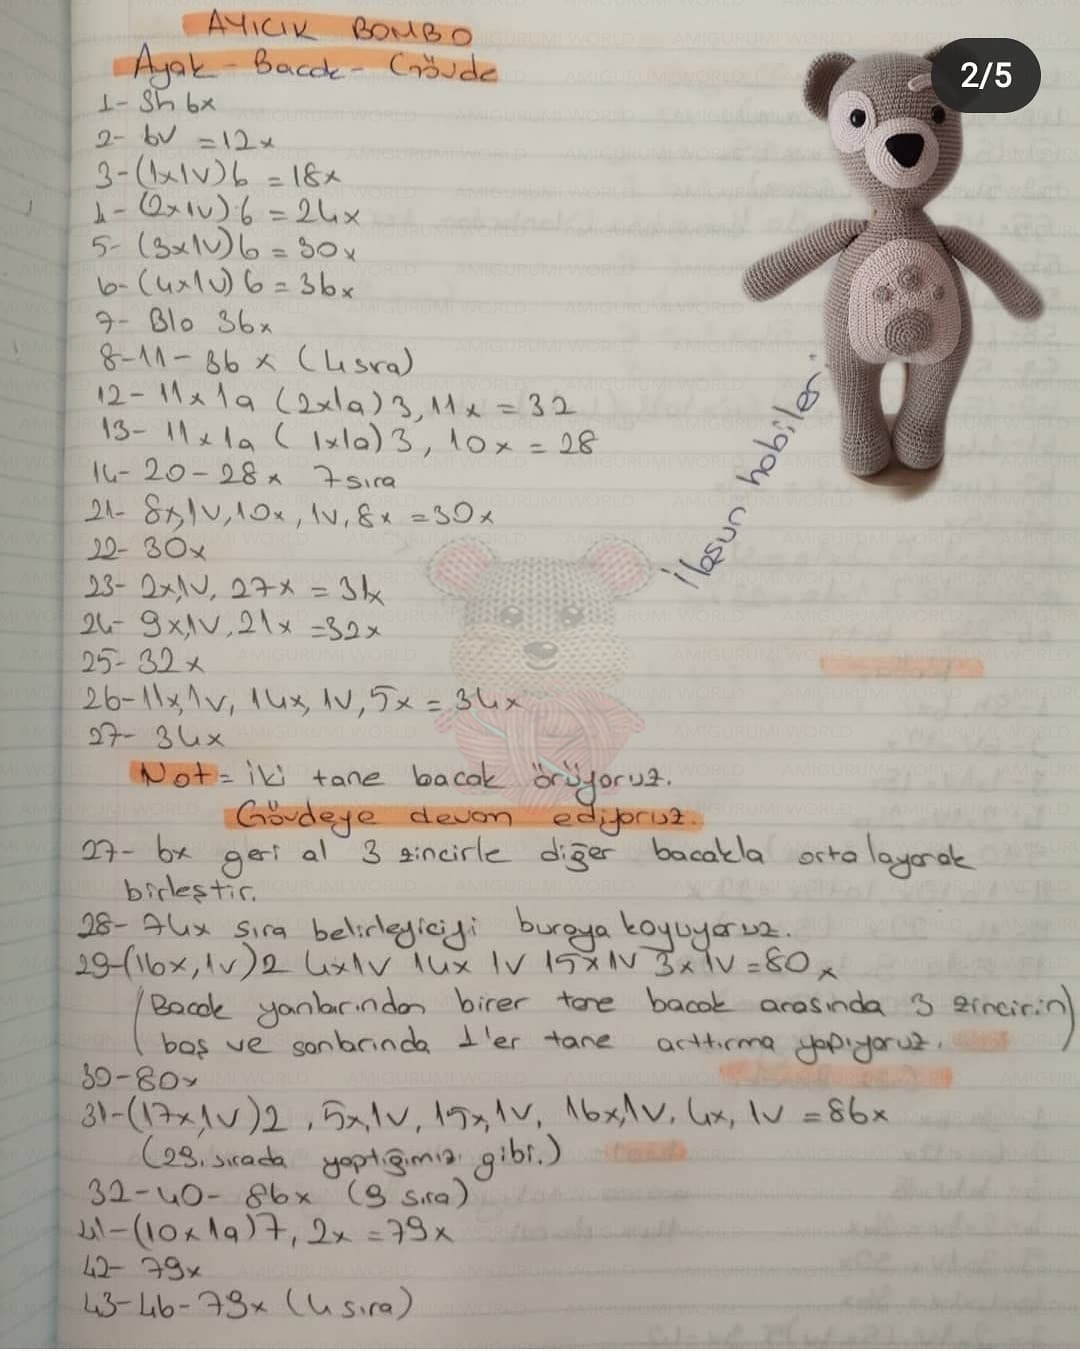 AYICIK BOMBO
2/5
Ayak - Bacak - Gövde
1- Sh 6x
2- 6v = 12x
3- (1x1v)6 = 18x
4- (2x1v).6 = 24x
5- (3x1v)6 = 30x
6- (4x1v)6 = 36x
7- Blo 36x
8-11- 36 x (4 sıra)
12- 11x 1a (2x1a)3, 11x = 32
13- 11x 1a (1x1a)3, 10x = 28
14- 20 - 28x 7 sıra
21- 8x,1v,10x,1v,8x = 30x
22- 30x
23- 2x,1v, 27x = 31x
24- 9x,1v,21x = 32x
25- 32x
26- 11x,1v, 14x, 1v, 5x = 34x
27- 34x
ilgsun hobiler.
Not = iki tane bacak örüyoruz.
Gövdeye devam ediyoruz.
27- 6x geri al 3 zincirle diğer bacakla ortalayarak
birleştir.
28- 74x sıra belirleyiciyi buraya koyuyoruz.
29-(16x,1v)2 4x1v 14x 1v 15x1v 3x1v = 80x
(Bacak yanlarından birer tane bacak arasında 3 zincirin
baş ve sonlarında 1'er tane arttırma yapıyoruz.)
30- 80x
31-(17x,1v)2, 5x,1v, 15x,1v, 16x,1v, 4x, 1v = 86x
(29. sırada yaptığımız gibi.)
32-40- 86x (9 sıra)
41-(10x1a)7, 2x = 79x
42- 79x
43-46- 79x (4 sıra)
AMIGURUMI WORLD